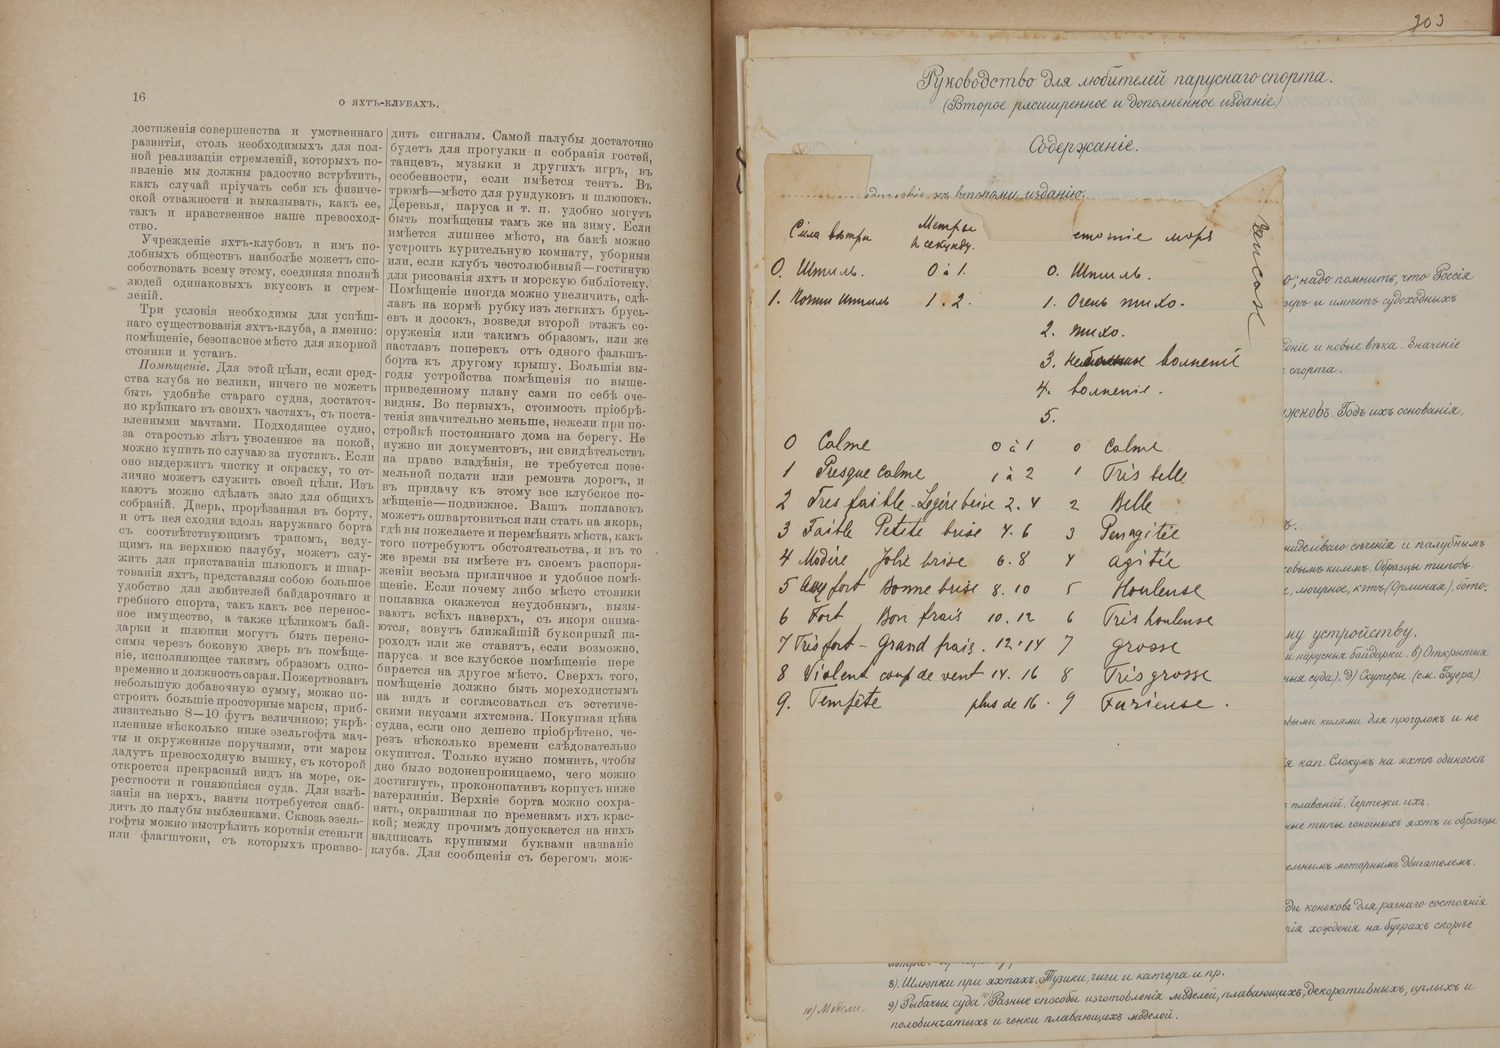 16
О ЯХТЪ-КЛУБАХЪ.
достиженія совершенства и умственнаго
развитія, столь необходимыхъ для пол-
ной реализаціи стремленій, которыхъ по-
явленіе мы должны радостно встрѣтить,
какъ случай пріучать себя къ физиче-
ской отважности и выказывать, какъ ее,
такъ и нравственное наше превосход-
ство.
Учрежденіе яхтъ-клубовъ и имъ по-
добныхъ обществъ наиболѣе можетъ спо-
собствовать всему этому, соединяя вполнѣ
людей одинаковыхъ вкусовъ и стрем-
леній.
Три условія необходимы для успѣш-
наго существованія яхтъ-клуба, а именно:
помѣщеніе, безопасное мѣсто для якорной
стоянки и уставъ.
Помѣщеніе. Для этой цѣли, если сред-
ства клуба не велики, ничего не можетъ
быть удобнѣе стараго судна, достаточ-
но крѣпкаго въ своихъ частяхъ, съ поста-
вленными мачтами. Подходящее судно,
за старостью лѣтъ уволенное на покой,
можно купить по случаю за пустякъ. Если
оно выдержитъ чистку и окраску, то от-
лично можетъ служить своей цѣли. Изъ
каютъ можно сдѣлать зало для общихъ
собраній. Дверь, прорѣзанная въ борту,
и отъ нея сходня вдоль наружнаго борта
съ соотвѣтствующимъ трапомъ, веду-
щимъ на верхнюю палубу, можетъ слу-
жить для приставанія шлюпокъ и швар-
тованія яхтъ, представляя собою большое
удобство для любителей байдарочнаго и
гребного спорта, такъ какъ все перенос-
ное имущество, а также цѣликомъ бай-
дарки и шлюпки могутъ быть перено-
симы черезъ боковую дверь въ помѣще-
ніе, исполняющее такимъ образомъ одно-
временно и должность сарая. Пожертвовавъ
небольшую добавочную сумму, можно по-
строить большіе просторные марсы, приб-
лизительно 8—10 футъ величиною; укрѣ-
пленные нѣсколько ниже эзельгофта мач-
ты и окруженные поручнями, эти марсы
дадутъ превосходную вышку, съ которой
откроется прекрасный видъ на море, ок-
рестности и гоняющіяся суда. Для взлѣ-
занія на верхъ, ванты потребуется снаб-
дить до палубы выбленками. Сквозь эзель-
гофты можно выстрѣлить короткія стеньги
или флагштоки, съ которыхъ произво-
дить сигналы. Самой палубы достаточно
будетъ для прогулки п собранія гостей,
танцевъ, музыки и другихъ игръ, въ
особенности, если имѣется тентъ. Въ
трюмѣ—мѣсто для рундуковъ и шлюпокъ.
Деревья, паруса и т. п. удобно могутъ
быть помѣщены тамъ же на зиму. Если
имѣется лишнее мѣсто, на бакѣ можно
устроить курительную комнату, уборныя
или, если клубъ честолюбивый—гостиную
для рисованія яхтъ и морскую библіотеку.
Помѣщеніе иногда можно увеличить, сдѣ-
лавъ на кормѣ рубку изъ легкихъ брусь-
евъ и досокъ, возведя второй этажъ со-
оруженія или такимъ образомъ, или же
наставъ поперекъ отъ одного фальшъ-
борта къ другому крышу. Большія вы-
годы устройства помѣщенія по выше-
приведенному плану сами по себѣ оче-
видны. Во первыхъ, стоимость пріобрѣ-
тенія значительно меньше, нежели при по-
стройкѣ постояннаго дома на берегу. Не
нужно ни документовъ, ни свидѣтельствъ
на право владѣнія, не требуется позе-
мельной подати или ремонта дорогъ, и
въ придачу къ этому все клубское по-
мѣщеніе—подвижное. Вашъ поплавокъ
можетъ ошвартовиться или стать на якорь,
гдѣ вы пожелаете и перемѣнять мѣста, какъ
того потребуютъ обстоятельства, и въ то
же время вы имѣете въ своемъ распоря-
женіи весьма приличное и удобное помѣ-
щеніе. Если почему либо мѣсто стоянки
поплавка окажется неудобнымъ, вызы-
ваютъ всѣхъ наверхъ, съ якоря снима-
ются, зовутъ ближайшій буксирный па-
роходъ или же ставятъ, если возможно,
паруса и все клубское помѣщеніе пере
бирается на другое мѣсто. Сверхъ того,
помѣщеніе должно быть мореходистымъ
на видъ и согласоваться съ эстетиче-
скими вкусами яхтсмэна. Покупная цѣна
судна, если оно дешево пріобрѣтено, че-
резъ нѣсколько времени слѣдовательно
окупится. Только нужно помнить, чтобы
дно было водонепроницаемо, чего можно
достигнуть, проконопативъ корпусъ ниже
ватерлиніи. Верхніе борта можно сохра-
нять, окрашивая по временамъ ихъ крас-
кой; между прочимъ допускается на нихъ
надписать крупными буквами названіе
клуба. Для сообщенія съ берегомъ мож-
303
Руководство для любителей паруснаго спорта.
(Второе расширенное и дополненное изданіе)
Содержаніе.
къ второму изданію.
Сила вѣтра Метры въ секунду. моря
0. Штиль. 0 à 1. 0. Штиль.
1. Почти Штиль 1. 2. 1. Очень тихо.
2. тихо.
3. волненіе
4. волненіе.
5.
0 Calme 0 à 1 0 Calme
1 Presque calme 1 à 2 1 Très belle
2 Tres faible - Legère brise 2. 4 2 Belle
3 Faible Petite brise 4. 6 3 Peu agitée
4 Modére Jolie brise 6. 8 4 agitée
5 Assez fort Bonne brise 8. 10 5 Houleuse
6 Fort Bon frais 10. 12 6 Très houleuse
7 Très fort - Grand frais. 12. 14 7 grosse
8 Violent coup de vent 14. 16 8 Très grosse
9. Tempête plus de 16. 9 Furieuse.
надо помнить, что Россія
и имѣетъ судоходныхъ
и новые вѣка. Значеніе
спорта.
Годъ ихъ основанія,
сѣченія и палубнымъ
Образцы типовъ.
му устройству.
и парусныя байдарки. в) Открытыя
суда). д) Скутеры. (см. Буера)
килями для прогулокъ и не
кап. Слокумъ на яхтѣ одиночкѣ
плаваній. Чертежи ихъ.
типы гоночныхъ яхтъ и образцы
моторнымъ двигателемъ.
коньковъ для разнаго состоянія
хожденія на буерахъ скорѣе
8). Шлюпки при яхтахъ. Тузики, гиги и катера и пр.
10) Модели.
9) Рыбачьи суда 10) Разные способы изготовленія моделей, плавающихъ, декоративныхъ, цѣлыхъ и
половинчатыхъ и гонки плавающихъ моделей.